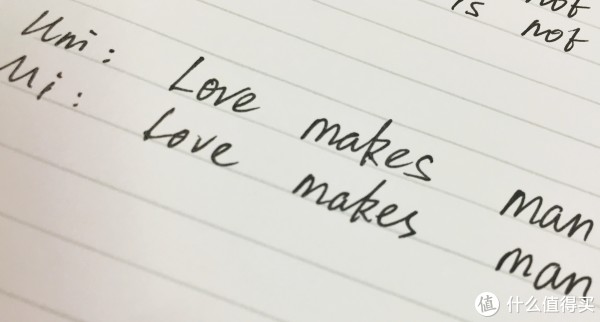 not
is not
Uni: Love makes man
Mi: Love makes man
值 什么值得买